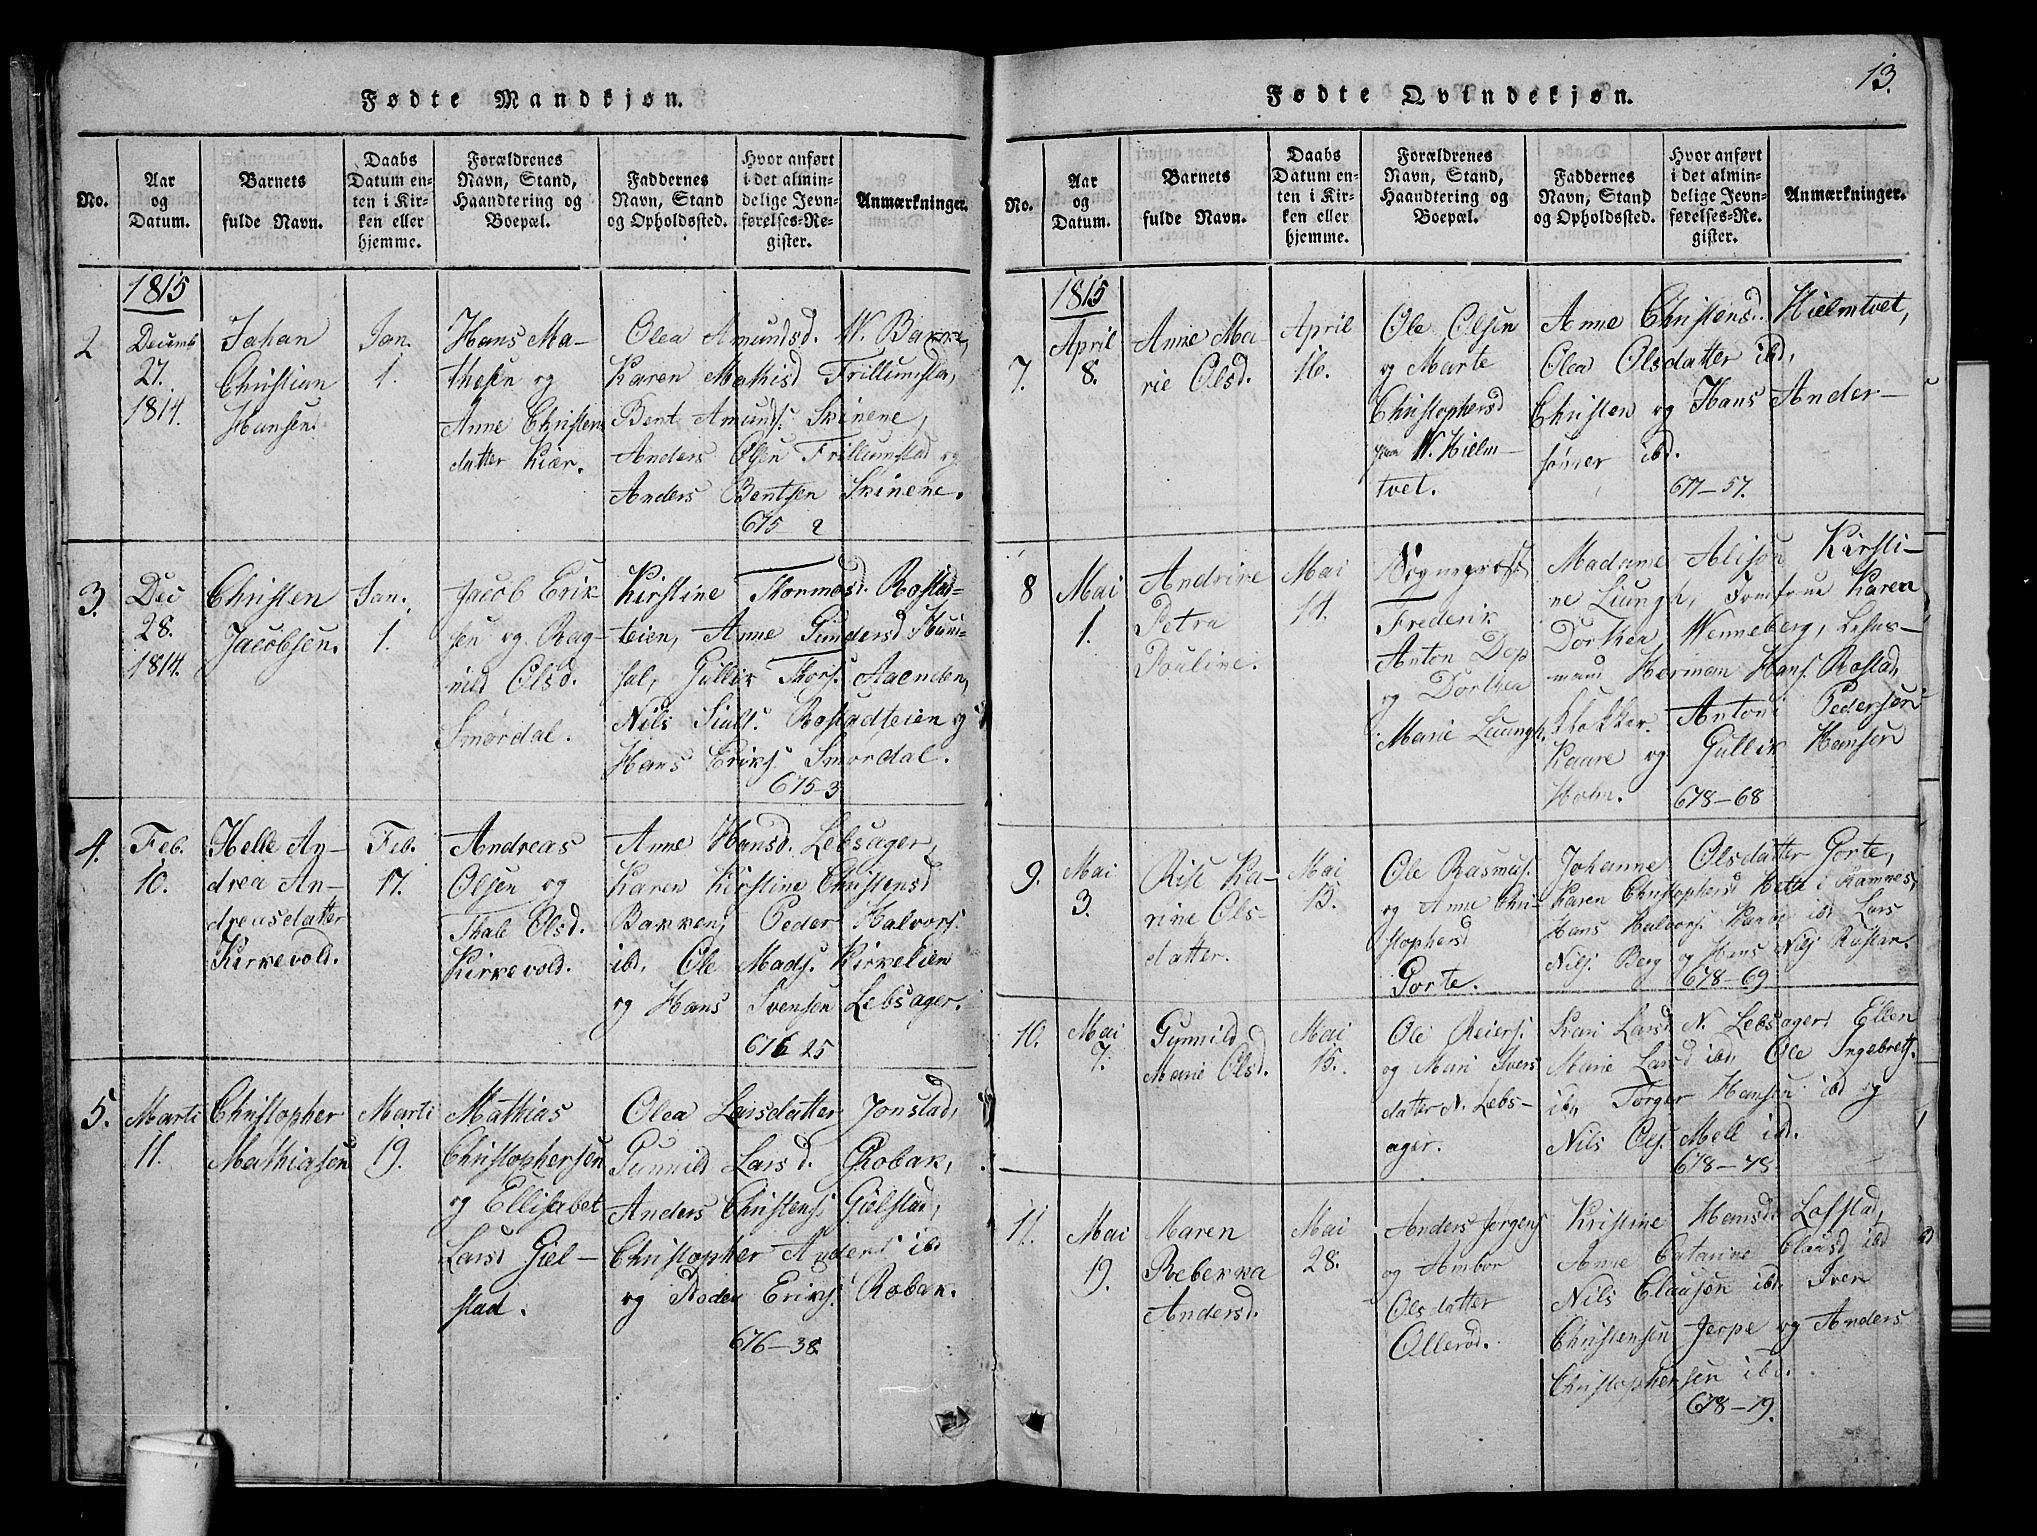 Fødte Mandkjøn.
No.
Aar
og
Datum.
Barnets
fulde Navn.
Daabs
Datum en-
ten i Kir-
ken eller
hjemme.
Forældrenes
Navn, Stand,
Haandtering og
Boepæl.
Faddernes
Navn, Stand
og Opholdssted.
Hvor anført
i det almin-
delige Jevn-
førelses-Re-
gister.
Anmærkninger.
1815
2
Decemb
27.
1814.
Johan
Christian
Hansen.
Jan.
1.
Hans Ma-
thesen og
Anne Christens
datter Kiær.
Olea Amundsd. N. Bakke,
Karen Mathisd Frillumstad,
Bent Amunds. Skinene,
Anders Olsen Frillumstad og
Anders Bentsen Skinene.
675 2
3.
Dec
28.
1814.
Christen
Jacobsen.
Jan.
1.
Jacob Erik-
sen og Rag-
nild Olsd.
Smørdal.
Kirstine Thormosd. Rostad-
teien, Anne Gundersd
Gullik Thors. Aaenden,
Nils Rostadteien og
Hans Eriks. Smørdal.
675-3
4.
Feb.
10.
Helle An-
drea An-
dreasdatter
Kirkevold.
Feb.
17.
Andreas
Olsen og
Thale Olsd.
Kirkevold.
Anne Hansd. Lebsager,
Karen Kirstine Christensd
Bakken, Peder Halvors.
ibd, Ole Mads. Kirkelien
og Hans Svensen Lebsager.
676 25
5.
Marti
11.
Christopher
Mathiasen
Marti
19.
Mathias
Christophersen
og Ellisabet
Larsd Giel-
stad.
Olea Larsdatter Jonstad,
Gunnild Larsd. Robak,
Anders Christens. Gielstad,
Christopher Anders ibd
og Peder Eriks. Robak.
676-38
13.
Fødte Qvindekjøn.
No.
Aar
og
Datum.
Barnets
fulde Navn.
Daabs
Datum en-
ten i Kir-
ken eller
hjemme.
Forældrenes
Navn, Stand,
Haandtering og
Boepæl.
Faddernes
Navn, Stand
og Opholdssted.
Hvor anført
i det almin-
delige Jevn-
førelses-Re-
gister.
Anmærkninger.
1815
7.
April
8.
Anne Ma-
rie Olsd.
April
16.
Ole Olsen
og Marte
Christophersd
N. Hielm-
tvet.
Anne Christensd. Hielmtvet,
Olea Olsdatter ibd,
Christen og Hans Ander-
sønner ibd.
677-57.
8
Mai
1.
Andrine
Petra
Pouline.
Mai
14.
Sognepræst
Frederik
Anton Dop
og Dorthea
Marie Liungh.
Madame Alison Kirsti-
ne Liungh, Jomfrue Karen
Dorthea Wenneberg, Lehns-
mand Herman Hans. Rostad,
Klokker Antoni Pedersen
Kaare og Gullik Hansen
Holm.
678-68
9.
Mai
3.
Rise Ka-
rine Ols-
datter.
Mai
15.
Ole Rasmus.
og Anne Chri-
stophersd
Gorte.
Johanne Olsdatter Gorte,
Karen Christophersd i Ramnes,
Hans Halvors. ibd Lars
Nils. Berg og Hans Nils
678-69
10.
Mai
7.
Gunnild
Marie Olsd.
Mai
15.
Ole Reiers.
og Mari Ivers
datter N. Lebs-
ager.
Kari Larsd N. Lebsager, Ellen
Marie Larsd ibd, Ole Ingebrets.
ibd, Torger Hansen ibd og
Nils Ols. Mell ibd.
678-78
11.
Mai
19.
Maren
Rebekka
Andersd.
Mai
28.
Anders Jørgens
og Ambor
Olsdatter
Ollerød.
Kristine Hansd. Lofstad,
Anne Catarine Clausd ibd
Nils Clausen ibd Iver
Christensen Jerpe og Anders
Christophersen ibd.
678-79.